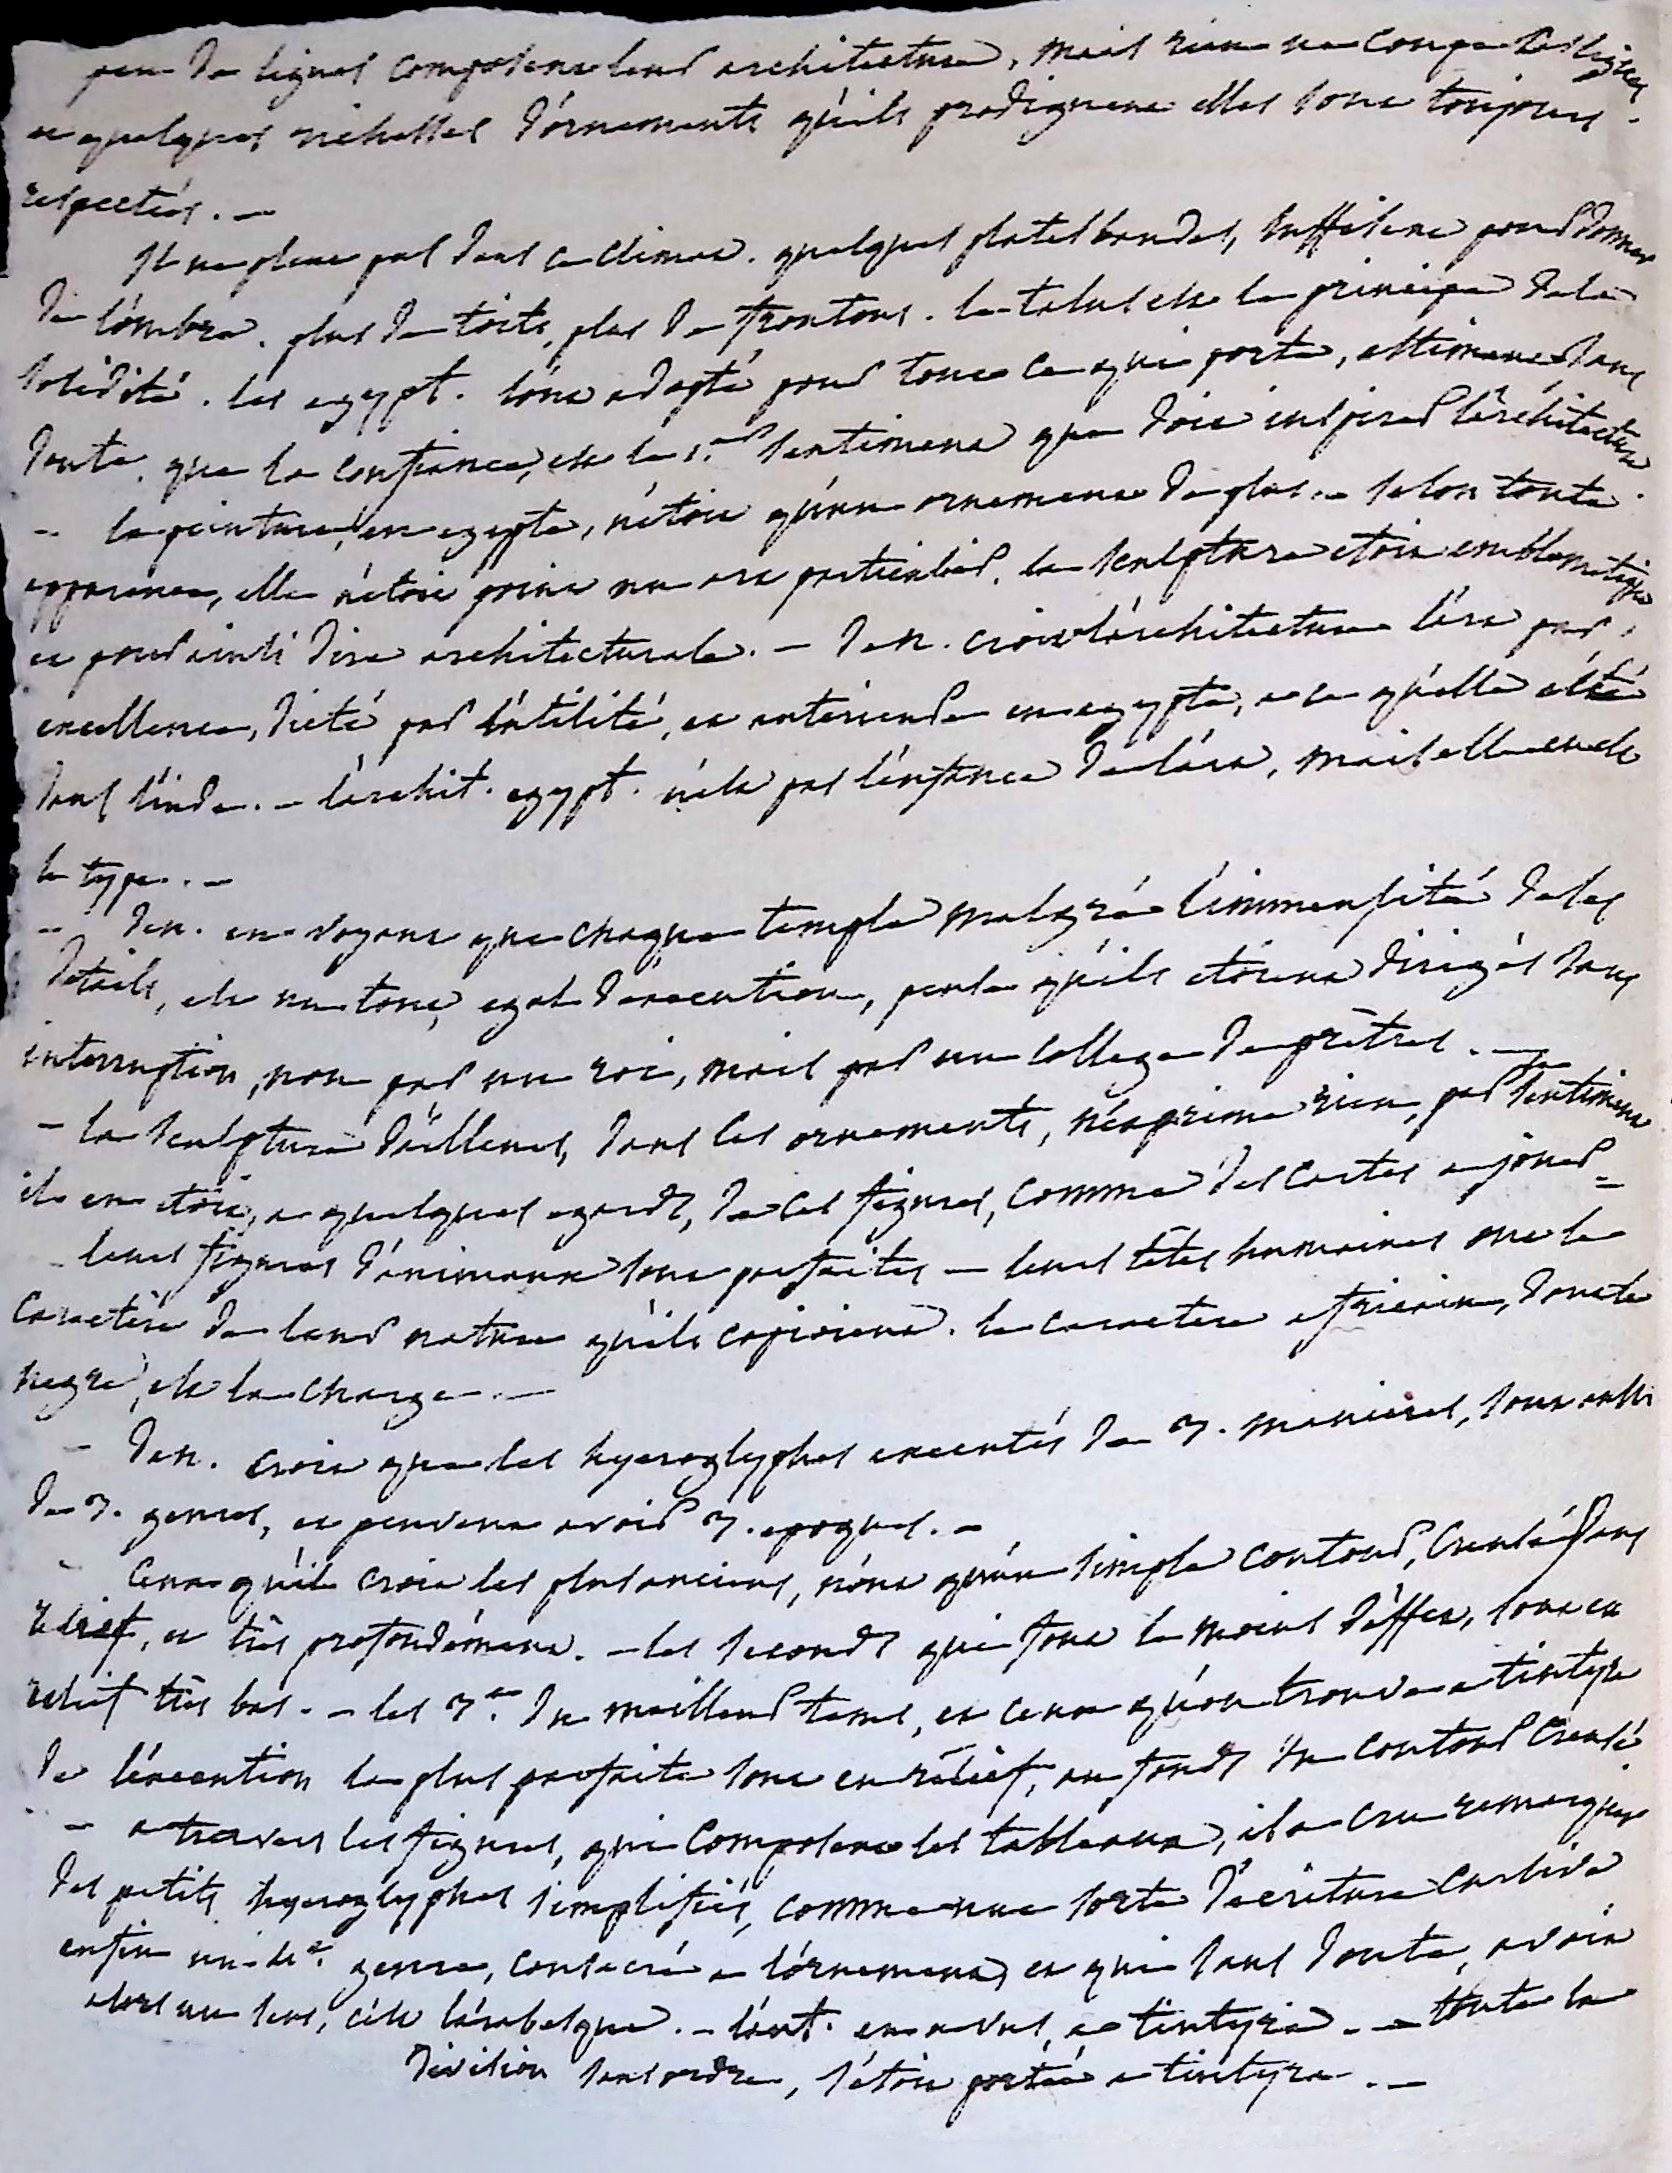 peu de lignes composent leur architecture, mais rien ne coupe ces lignes
et quelques richesses d'ornements qu'ils prodiguent elles sont toujours
respectées. —
Il ne pleut pas dans ce climat. quelques plates bandes, suffisent pour donner
de l'ombre. plus de toits, plus de frontons. le talus est le principe de la
solidité. les egypt. l'ont adopté pour tout ce qui porte, estimant sans
doute, que la confiance, est le 1.er sentiment que doit inspirer l'architecture
— la peinture, en egypte, n'étoit qu'un ornement de plus — selon toute
apparence, elle n'étoit point un art particulier. la sculpture etoit emblematique
et pour ainsi dire architecturale. — Den. croit l'architecture l'art par
excellence, dicté par l'utilité, et anterieure en egypte, a ce qu'elle a été
dans l'inde. — l'archit. egypt. n'est pas l'enfance de l'art, mais elle en est
le type. —
— Den. en voyant que chaque temple malgré l'immensité de ses
details, est un tout, egal d'execution, pense qu'ils etoient dirigés sans
interruption, non par un roi, mais par un college de prêtres. —
— la sculpture d'ailleurs, dans les ornements, n'exprime rien, par sentiment
il en étoit, a quelques egards, de ces figures, comme des cartes a jouer
— leurs figures d'animaux sont parfaites — leurs têtes humaines ont le
caractère de leur nature qu'ils copioient. le caractere africain, dont le
negre, est la charge. —
— Den. croit que les hyeroglyphes executés de 3. manieres, sont aussi
de 3. genres, et peuvent avoir 3. epoques. —
— Ceux qu'il croit les plus anciens, n'ont qu'un simple contour, creusé sans
relief, et très profondément. — les seconds qui font le moins d'effet, sont en
relief très bas. — les 3.es du meilleur tems, et ceux qu'on trouve a tintyre
de l'execution la plus parfaite sont en relief, au fond du contour creusé
— a travers les figures, qui composent les tableaux, il a cru remarquer
des petits hyeroglyphes simplifiés, comme une sorte d'ecriture cursive
enfin un genre, consacré a l'ornement, et qui sans doute, avoit
alors un sens, c'est l'arabesque. — l'aut. en a vus, a tintyra. — toute la
division sans ordre, s'étoit portée a tintyra. —